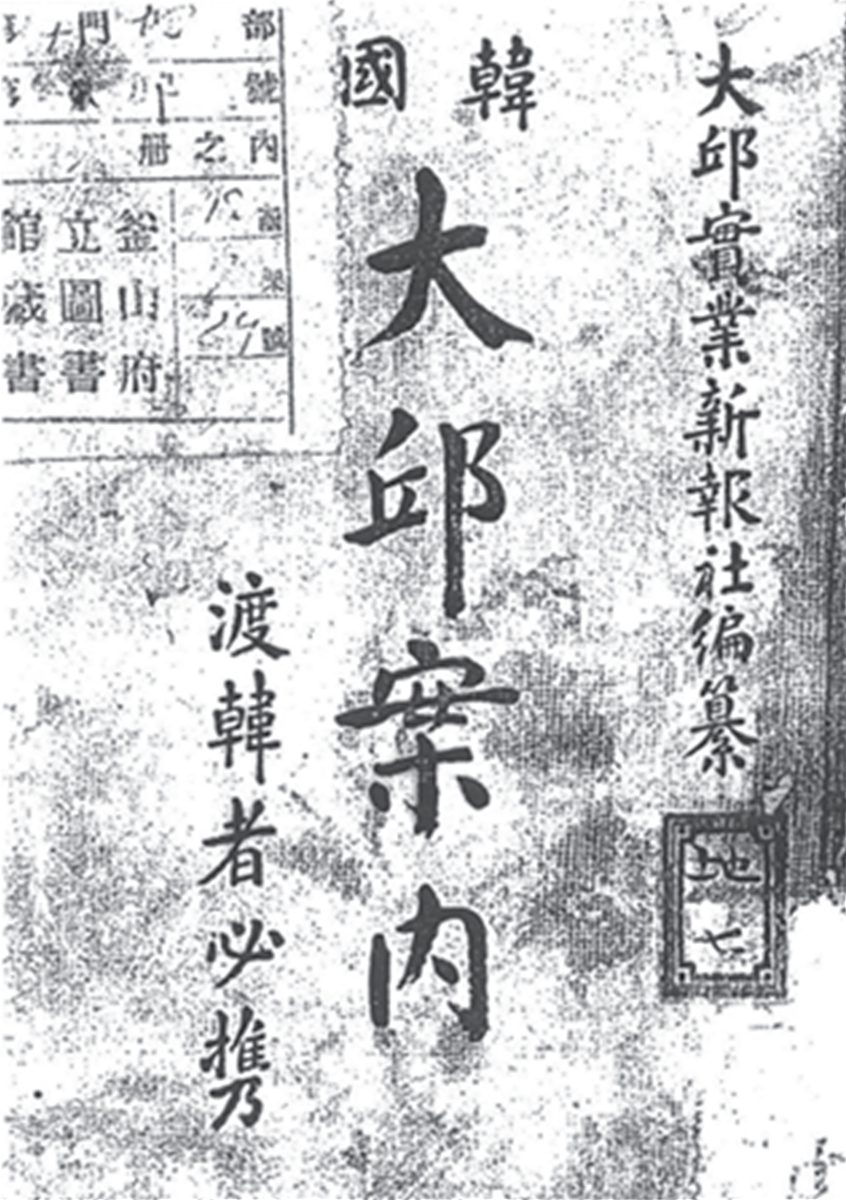 大邱實業新報社編纂
地七
韓國
大邱案内
渡韓者必携
部 門
號
内之冊
號
釜山府
立圖書
館蔵書